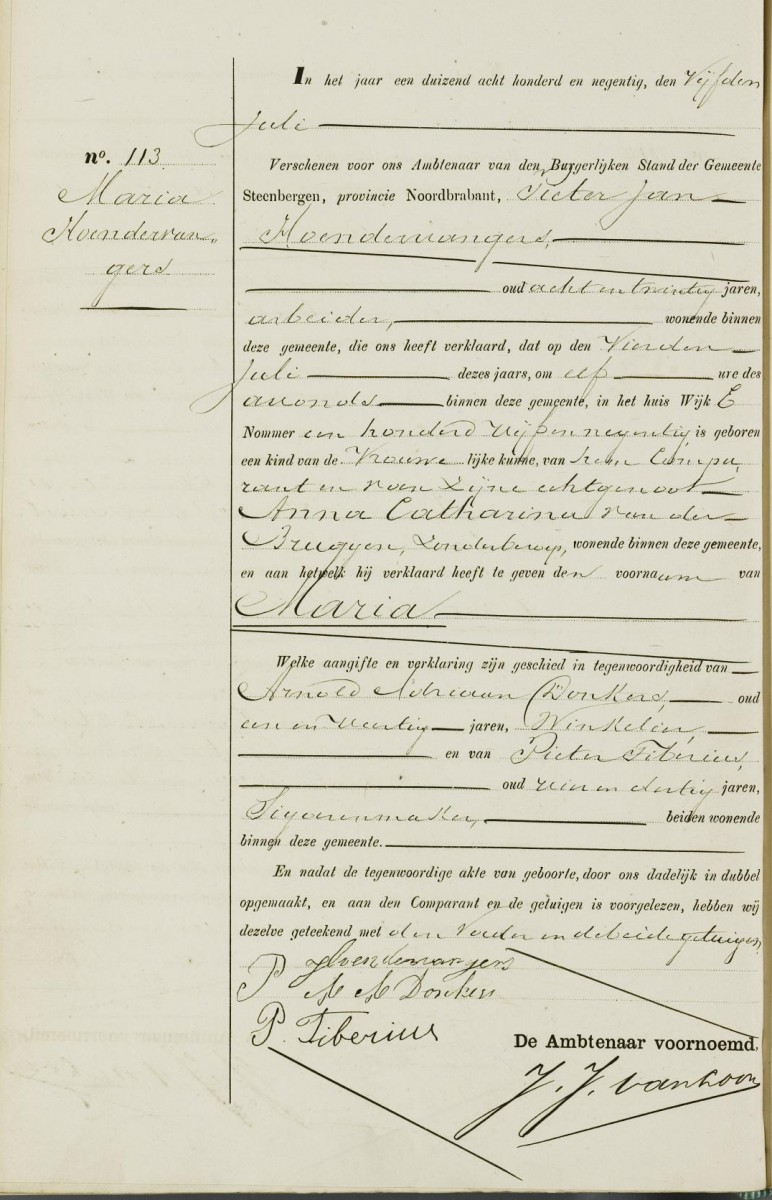 nº. 113
Maria
Hoendervan„
gers
In het jaar een duizend acht honderd en negentig, den Vijfden
Juli
Verschenen voor ons Ambtenaar van den Burgerlijken Stand der Gemeente
Steenbergen, provincie Noordbrabant, Pieter Jan
Hoendervangers,
oud acht en twintig jaren,
arbeider, wonende binnen
deze gemeente, die ons heeft verklaard, dat op den Vierden
Juli dezes jaars, om elf ure des
avonds binnen deze gemeente, in het huis Wijk E
Nommer een honderd vijf en negentig is geboren
een kind van de Vrouwe lijke kunne, van hem Compa„
rant en van zijne echtgenoot
Anna Catharina van der
Bruggen, zonder beroep, wonende binnen deze gemeente,
en aan hetwelk hij verklaard heeft te geven den voornaam van
Maria
Welke aangifte en verklaring zijn geschied in tegenwoordigheid van
Arnold Adriaan Donkers, oud
een en veertig jaren, Winkelier,
en van Pieter Tiberius,
oud vier en dertig jaren,
Sigarenmaker, beiden wonende
binnen deze gemeente.
En nadat de tegenwoordige akte van geboorte, door ons dadelijk in dubbel
opgemaakt, en aan den Comparant en de getuigen is voorgelezen, hebben wij
dezelve geteekend met den Vader en de beide getuigen
P Hoendervangers
A A Donkers
P. Tiberius
De Ambtenaar voornoemd,
J. J. van Loon